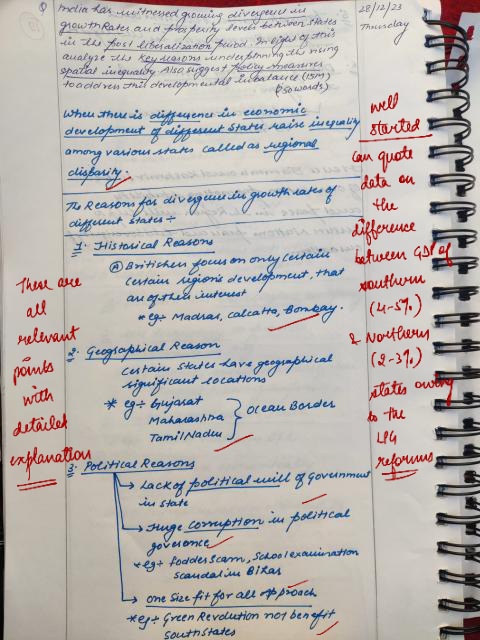 Q India has witnessed growing divergence in
growth Rates and prosperity levels between states
in the post liberalization period. In light of this
analyze the key reasons underpinning the rising
spatial inequality. Also suggest policy measures
to address this developmental imbalance (15M)
(250 words)
28/12/23
Thursday
When there is difference in economic
development of different States raise inequality
among various states called as regional
disparity.
The Reasons for divergence in growth rates of
different states :-
1. Historical Reasons
(A) Britishers focus on only certain
certain region's development, that
are of their interest
* eg:- Madras, Calcutta, Bombay.
2. Geographical Reason
certain states have geographical
significant locations
* eg:- Gujarat
Maharashtra
Tamil Nadu
Ocean Border
3. Political Reasons
→ Lack of political will of Government
in state
→ Huge corruption in political
goverance
* eg:- fodder Scam, School examination
Scandal in Bihar
→ One size fit for all approach
* eg:- Green Revolution not benefit
South States
well
started
Can quote
data on
the
difference
between GDP of
southern
(4-5%)
& Northern
(2-3%)
states owing
to the
LPG
reforms
There are
all
relevant
points
with
detailed
explanation